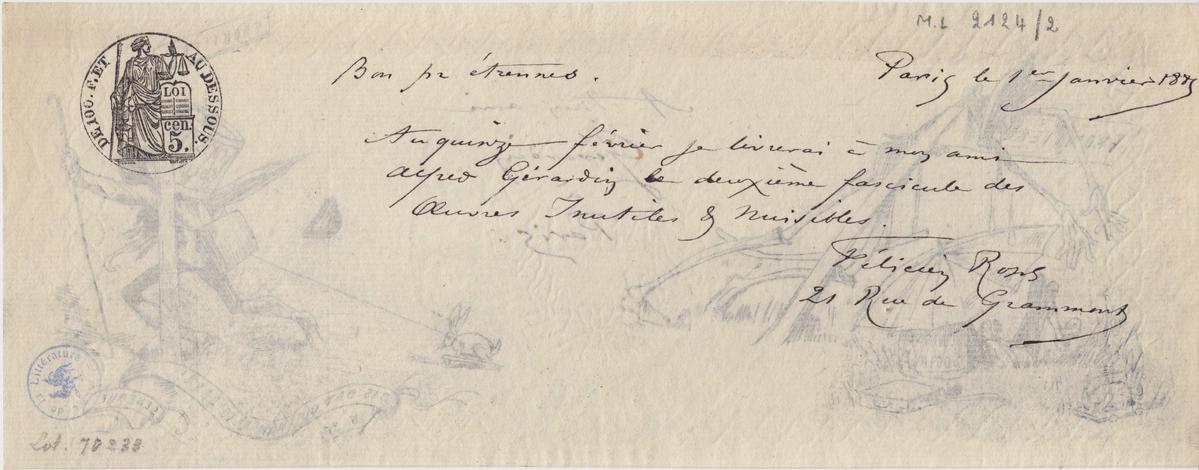 M.L 2124/2
DE 100. F. ET AU DESSOUS.
LOI
cen.
5.
Bon pr étrennes.
Paris le 1er Janvier
Au quinze février je livrerai à mon ami
Alfred Gérardin le deuxième fascicule des
Œuvres Inutiles & Nuisibles.
Félicien Rops
21 Rue de Grammont
Littérature
Lot. 70238